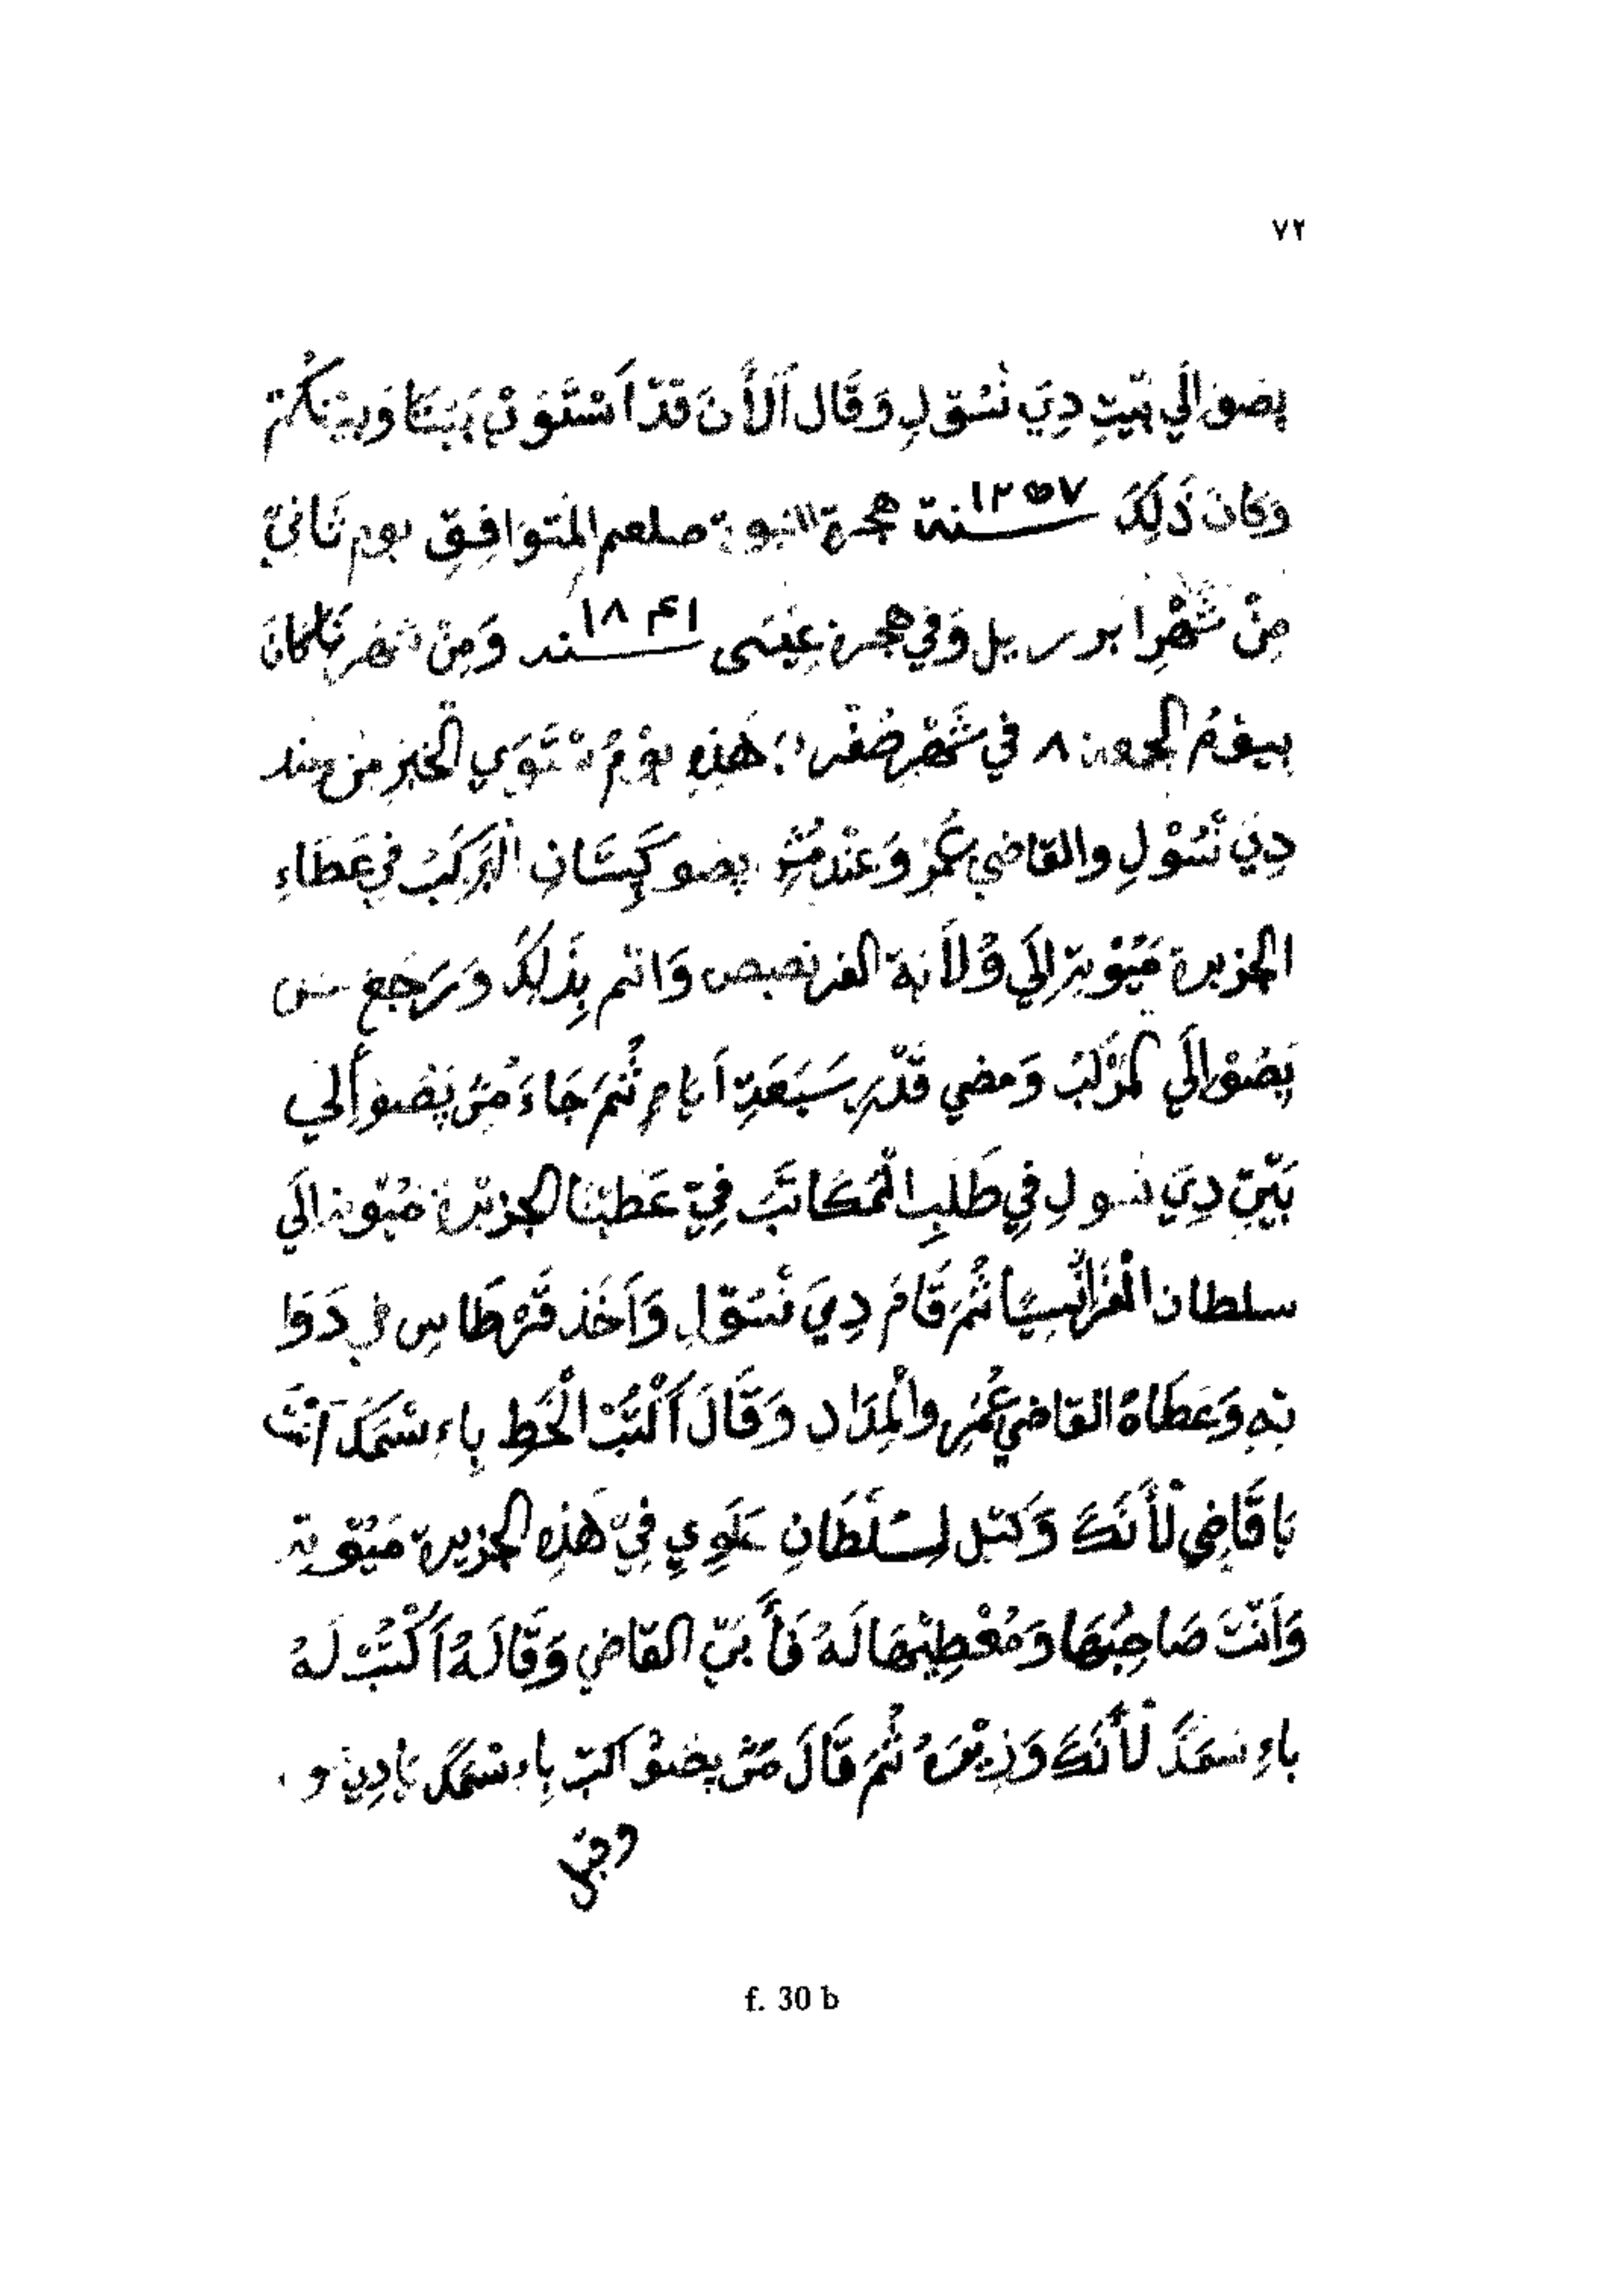 ٧٢
بضو الَي بَيْتِ دِيَ نْسُوْلِ وَقَال اَلْأَنَ قَدْ اَسْتَوَيْ بَيْنَنَا وَبَيْنَكُمْ
وَكَانَ ذَلِكَ سنة ١٢٥٧ هجرة النبوية صلعم المتوافِقِ يوم ثَانِيْ
مِنْ شَهْرِ ابر ريل وَفي هجرة عِيْسَى سنه ١٨٤١ وَمِنْ شهر نا كَانَ
بيوْمُ الجمعة ٨ في شَهْرِ صَفَر هَذِهِ يَوْمُ سْتَوَي الخبَرِ مِنْ عِند
دِيَ نْسُوْلِ والقاضي عُمَرْ وَعِنْدَ مَسْ بضو كَپِتَانِ الْمَركَبْ في عَطَاءِ
الجزيرة مَيُوْتِه اِلَي وُلَايَة الفرنصيص وَاتم بِذَلِكَ وَرَجَعَ مس
بَضُوْ اِلَي الْمَرْكَبْ وَمضي قَدْرِ سَبَعَةِ اَيامِ ثُمَ جَاءَ مَسْ بَضُوا اِلَي
بَيْتِ دِيَ نسولِ فِي طَلَبِ الْمُكَاتَبْ فِيْ عَطَيْنَا الجزيْرة مَيُوته اِلَي
سلطان الْفَرَانْسِيْسَا ثُمَ قَامَ دِيَ نْسُوْلِ وَاَخَذ قَرْطَاسِ في دَوَا
تِهِ وَعَطَاهُ القاضي عُمَرِ والْمِدَادِ وَقَالَ اَكْتُبْ الْخَطِ بِاءِسْمَكَ اَنْتَ
يا قَاضِي لْأَنَكَ وَكيل لِسُلْطَانِ عَلَوِي فِيْ هَذِهِ الجزيرة مَيُوْتِه
وَاَنْتَ صَاحِبُهَا وَمُعْطِيْهَا لَهُ فَأَبَيْ القاضي وَقَالَهُ اَكْتُبْ لَهُ
باءِسْمَكَ لْأَنَكَ وَزِيْرَهُ ثُمَ قَالَ مَسْ بضوْ اكتب بِاءِسْمَكَ يَا دِيَنْ و
f. 30 b